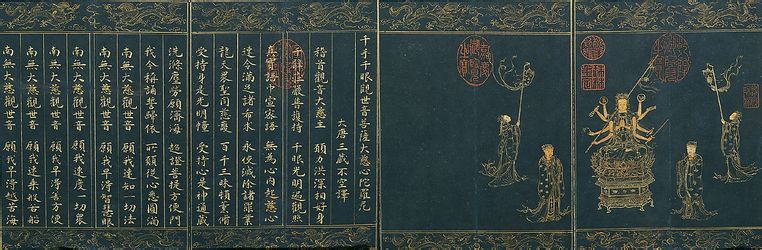 千手千眼觀世音菩薩大悲心陀羅尼
大唐三藏不空譯
稽首觀音大悲主 願力洪深相好身
千臂莊嚴普護持 千眼光明遍觀照
真實語中宣密語 無為心內起悲心
速令滿足諸希求 永使滅除諸罪業
龍天眾聖同慈護 百千三昧頓熏修
受持身是光明幢 受持心是神通藏
洗滌塵勞願濟海 超證菩提方便門
我今稱誦誓歸依 所願從心悉圓滿
南無大悲觀世音 願我速知一切法
南無大悲觀世音 願我早得智慧眼
南無大悲觀世音 願我速度一切眾
南無大悲觀世音 願我早得善方便
南無大悲觀世音 願我速乘般若船
南無大悲觀世音 願我早得越苦海